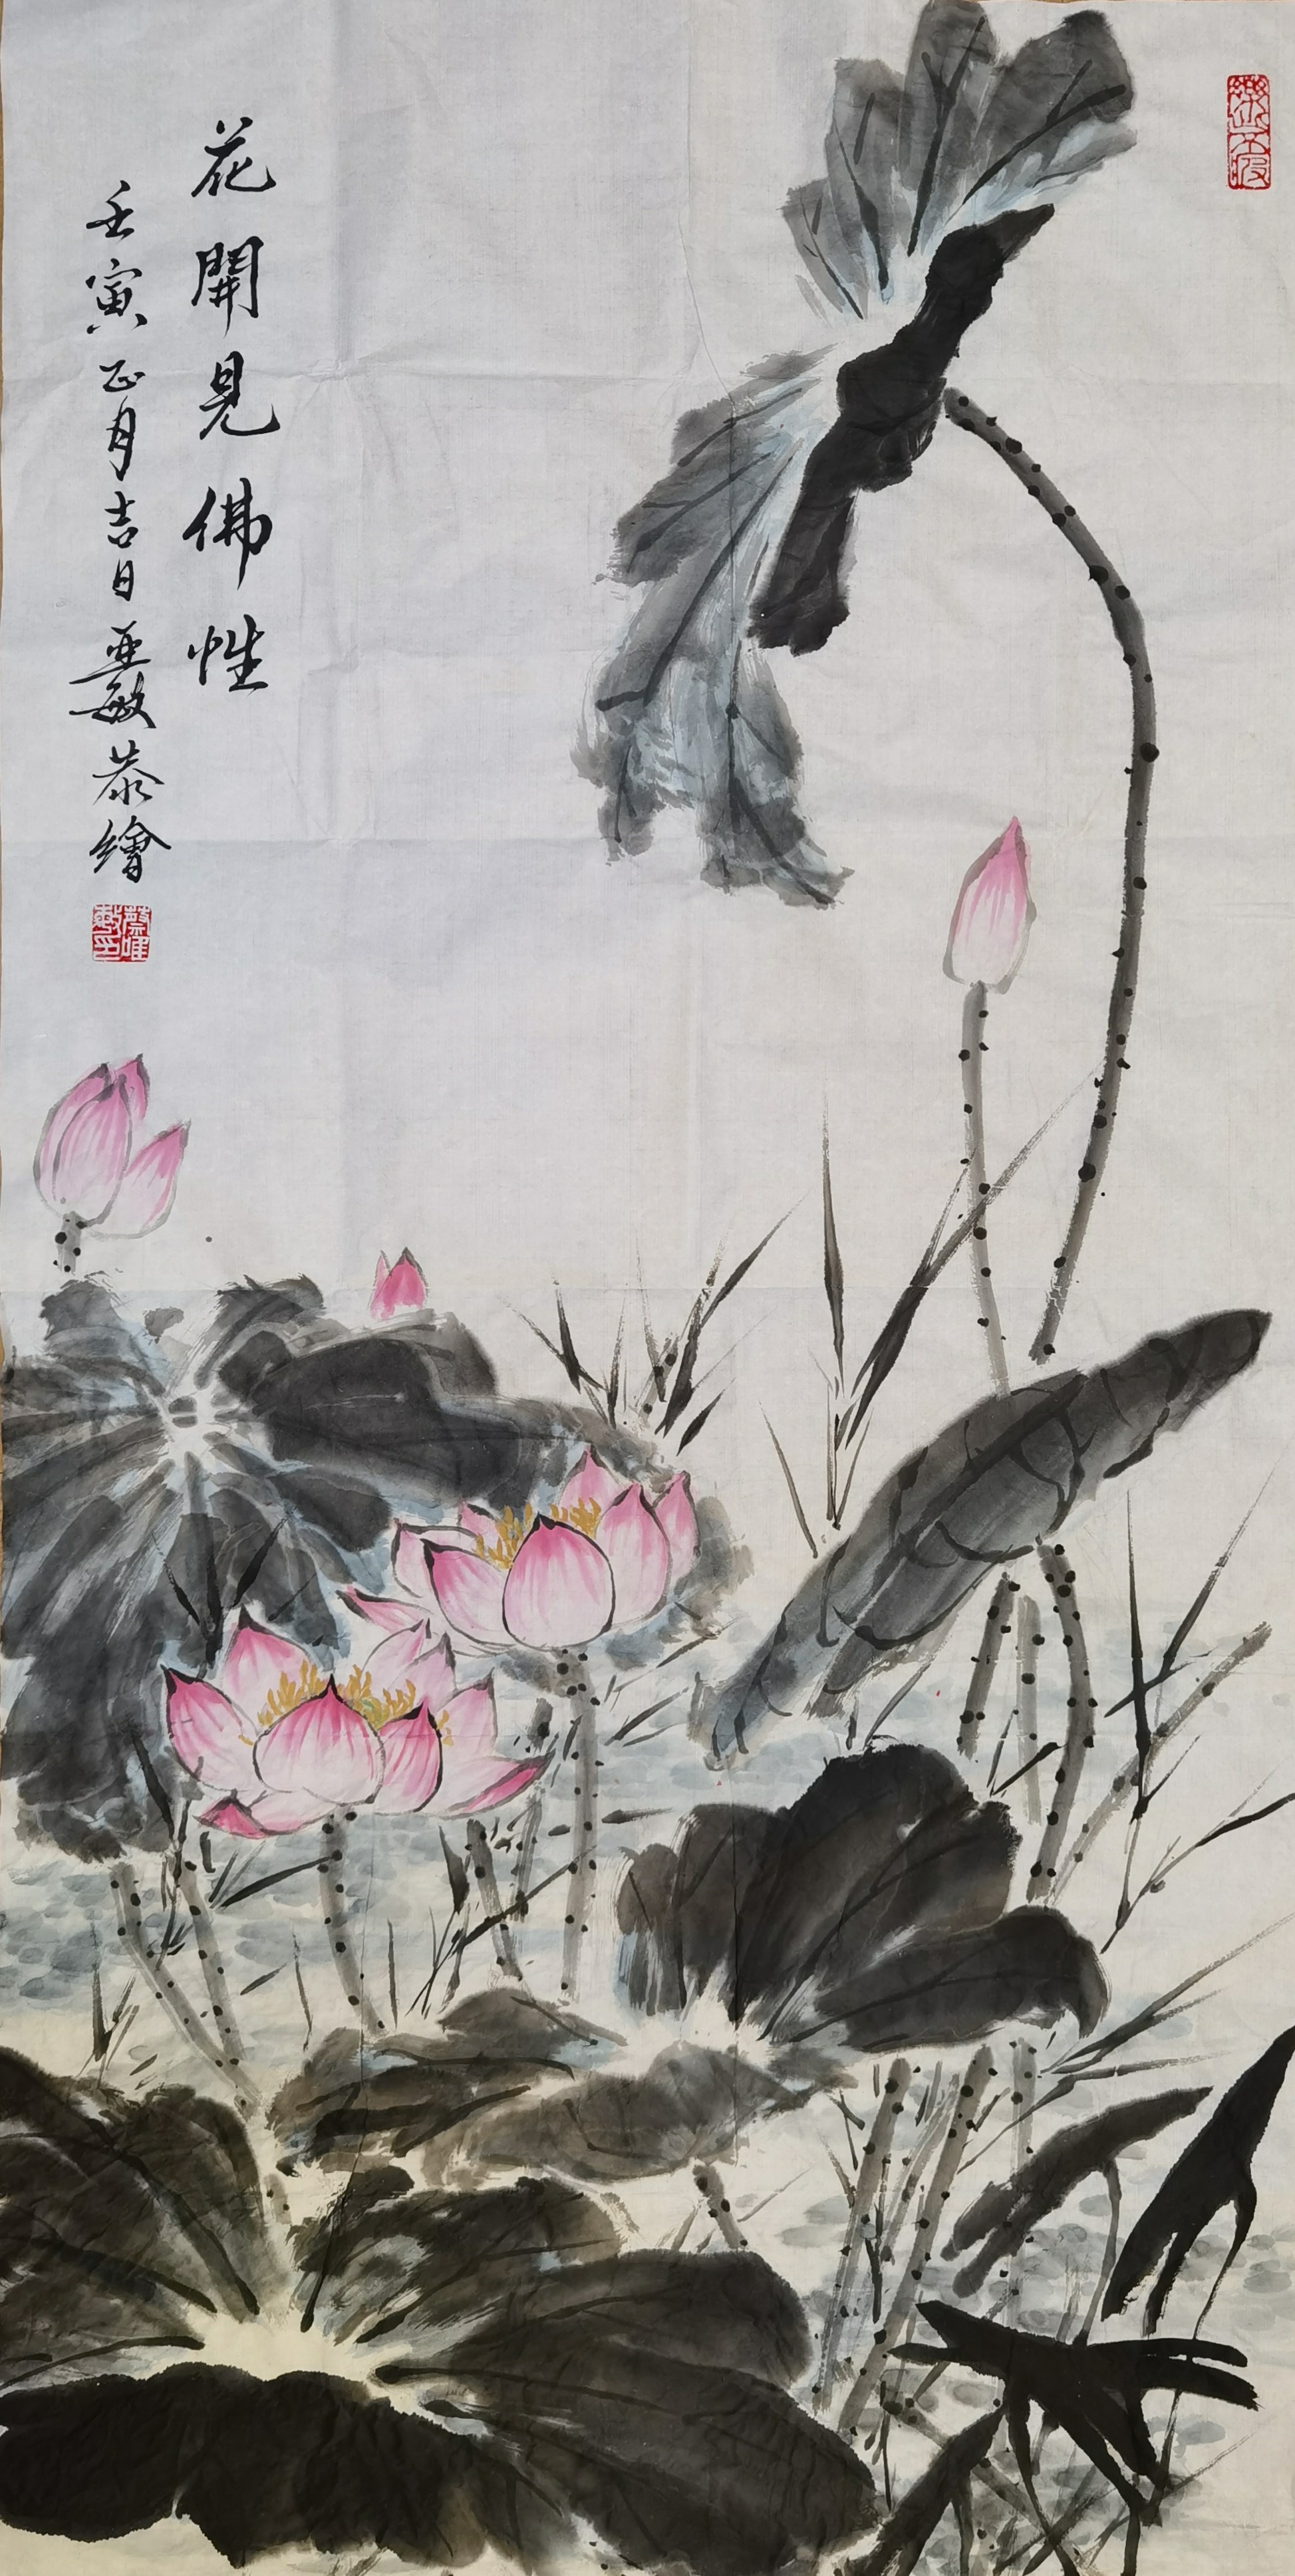 花開見佛性
壬寅正月吉日亞敏恭繪